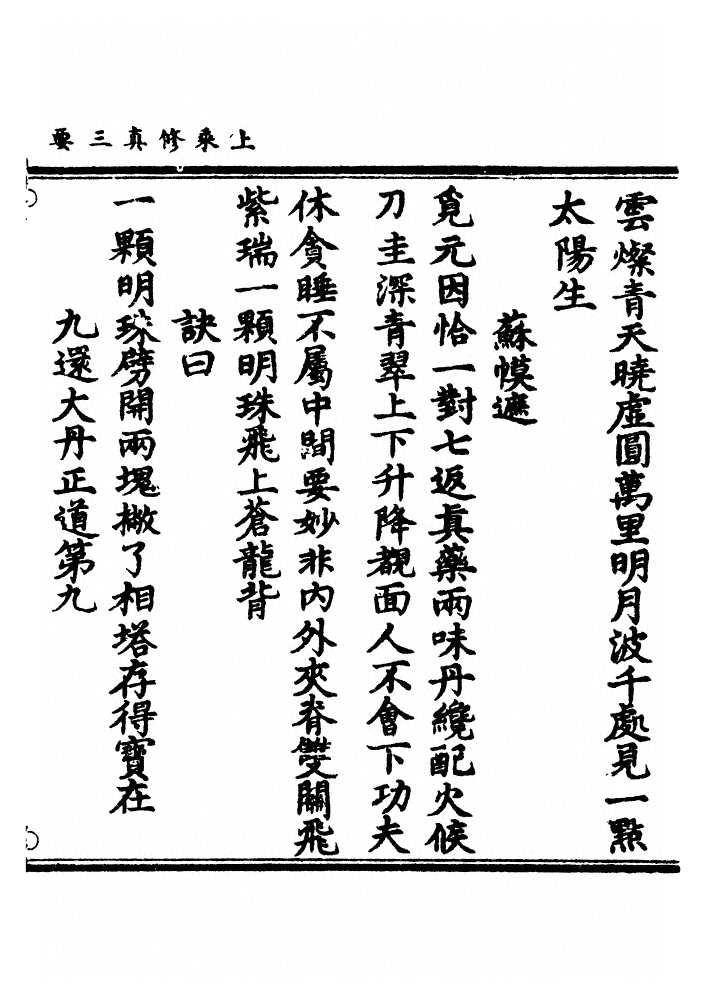 上乘修真三要
雲燦青天曉虛圓萬里明月波千處見一點
太陽生
蘇幙遮
覓元因恰一對七返眞藥兩味丹纔配火候
刀圭深青翠上下升降覩面人不會下功夫
休貪睡不屬中間要妙非內外夾脊雙關飛
紫瑞一顆明珠飛上蒼龍背
訣曰
一顆明珠劈開兩塊撇了相塔存得寶在
九還大丹正道第九